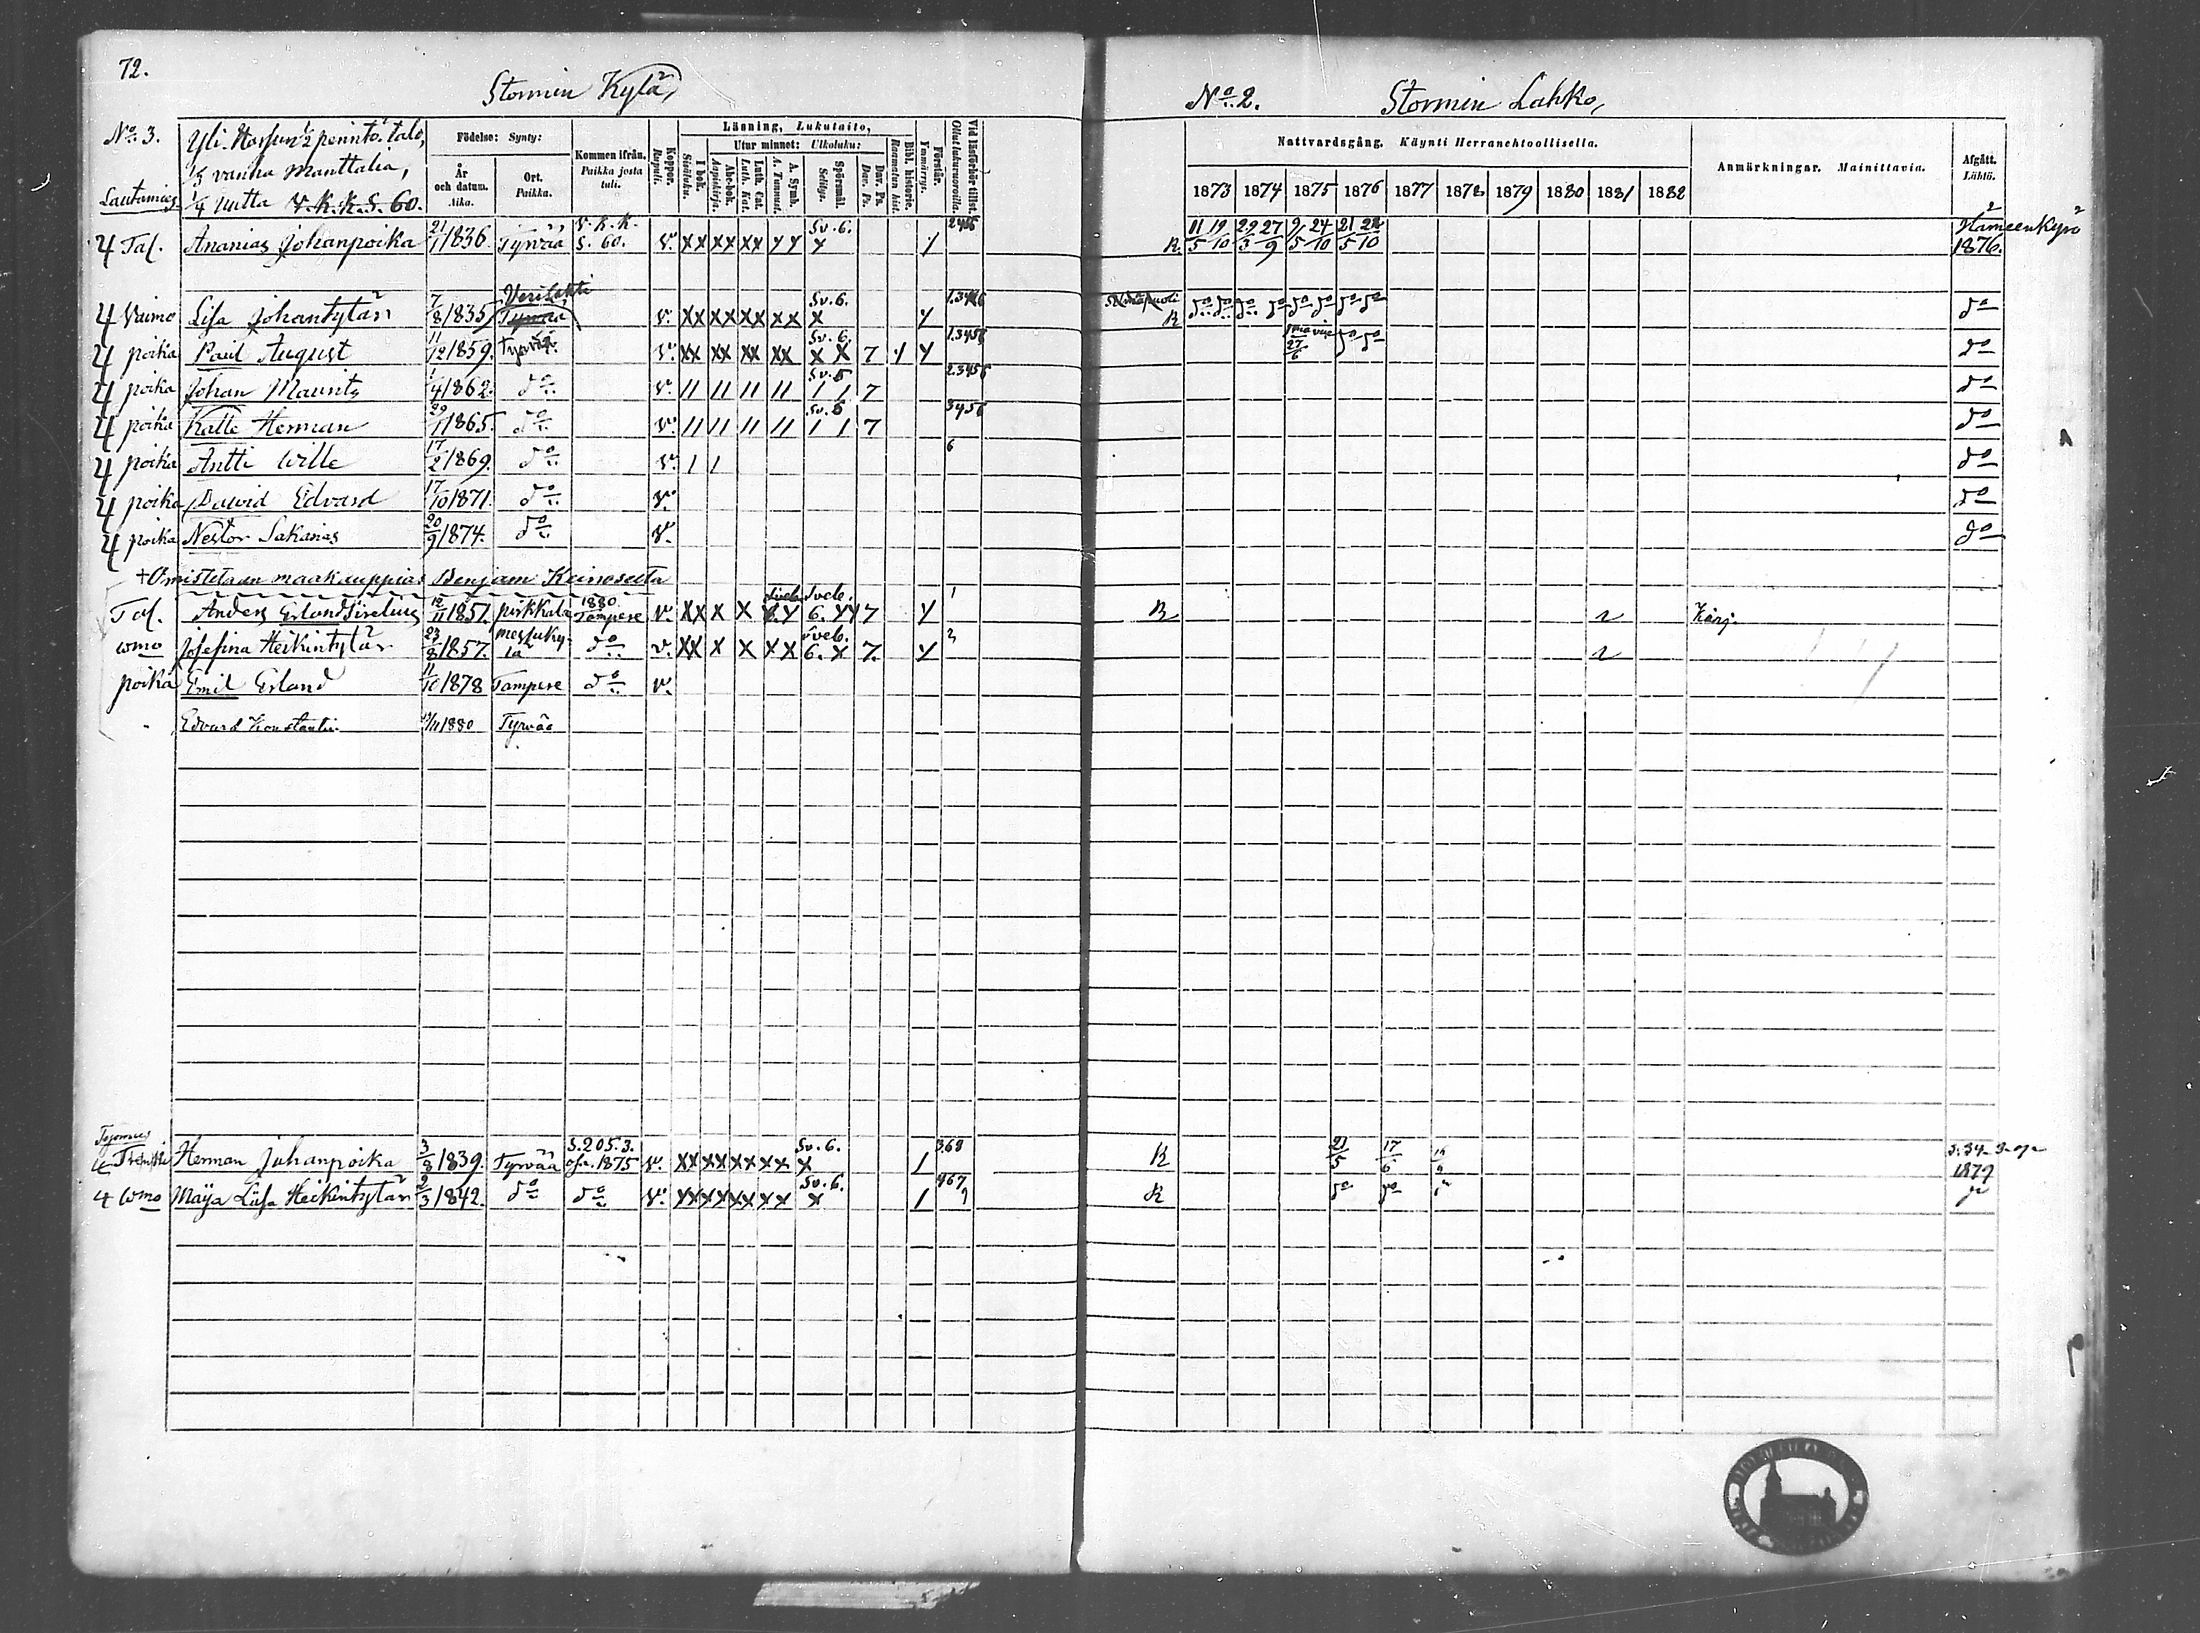 72.
Stormin Kylä,
No. 2.
Stormin Lahko,
No. 3.
Yli-Hassun ½ perintö talo,
⅓ vanha Manttalia,
Lautamies
¼ uutta V.K.K.S. 60.
Födelse: Synty:
År och datum. Aika.
Ort. Paikka.
Kommen ifrån. Paikka josta tuli.
Koppor. Rupuli.
Läsning, Lukutaito,
I bok. Sisäluku.
Utur minnet: Ulkoluku:
Abc-bok. Aapiskirja.
Luth. Cat. Luth. Kat.
A. Symb. A. Tunnust.
Spörsmål Selitys.
Dav. Ps. Dav. Ps.
Bibl. historie. Raamatun hist.
Förstår. Ymmärrys.
Vid läsförhör tillst. Ollut lukuvuoroilla.
Nattvardsgång. Käynti Herranehtoollisella.
1873 1874 1875 1876 1877 1878 1879 1880 1881 1882
Anmärkningar. Mainittavia.
Afgått. Lähtö.
4 Tal. Ananias Johanpoika 21/1 1836. Tyrvää V.K.K. S. 60. v. XX XX XX Sv. 6. X R. 11/5 19/10 29/3 27/9 9/5 24/10 21/5 22/10 Hämeenkyrö 1876.
4 Vaimo Lisa Johantytär 7/8 1835 Vesilahti Tyrvää v. XX XX XX XX Sv. 6. X R do do do do do do do do do
4 poika Paul August 11/12 1859. Tyrvää v. XX XX XX XX Sv. 6. X X 7 27/6 do do do
4 poika Johan Maurits 1/4 1862. do v. II II II II Sv. 5 I I 7 2.3456 do
4 poika Kalle Herman 29/1 1865. do v. II II II II Sv. 5 I I 7 3456 do
4 poika Antti Wille 17/2 1869. do v. I I 6 do
4 poika David Edvard 17/10 1871. do v. do
4 poika Nestor Sakarias 20/9 1874. do v. do
+ Omistetaan maakauppias Benjam Keinoselta
Tal. Anders Erland Sirelius 12/11 1851. Pirkkala 1880 Tampere v. XX X X 7 1 R Kärj.
wmo Josefina Heikintytär 23/8 1857. Messukylä do v. XX X X XX 6. X 7. 2
poika Emil Erland 11/10 1878 Tampere do v.
Edvard Konstantin 1880 Tyrvää
Työmies
4 Herman Juhanpoika 3/8 1839. Tyrvää S. 205.3. 1875 v. XX XX XX XX Sv. 6. X I 368 R 21/5 17/6 1879
4 wmo Maija Liisa Heikintytär 2/3 1842. do do v. XX XX XX XX Sv. 6. X I 467 R do do